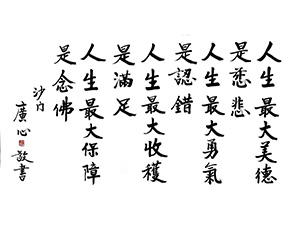 人生最大美德
是慈悲
人生最大勇氣
是認錯
人生最大收穫
是滿足
人生最大保障
是念佛
沙門
廣心 敬書